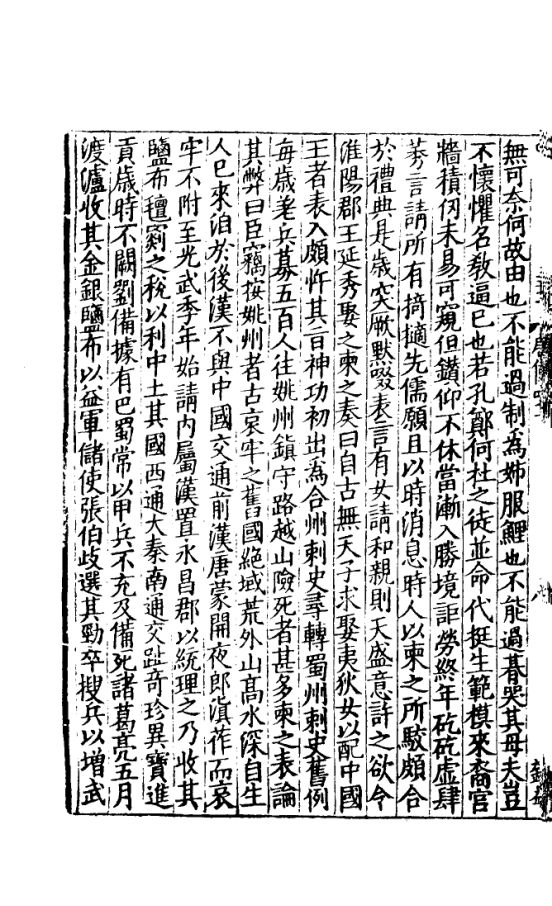 無可奈何故由也不能過制為姊服鯉也不能過朞哭其母夫豈
不懷懼名敎逼已也若孔鄭何杜之徒並命代挺生範模來裔宮
牆積仞未易可窺但鑚仰不休當漸入勝境詎勞終年矻矻虛肆
莠言請所有掎摭先儒願且以時消息時人以柬之所駮頗合
於禮典是歲突厥默啜表言有女請和親則天盛意許之欲令
淮陽郡王延秀娶之柬之奏曰自古無天子求娶夷狄女以配中國
王者表入頗忤其旨神功初出為合州刺史尋轉蜀州刺史舊例
每歲差兵募五百人往姚州鎮守路越山險死者甚多柬之表論
其弊曰臣竊按姚州者古哀牢之舊國絕域荒外山高水深自生
人已來洎於後漢不與中國交通前漢唐蒙開夜郎滇莋而哀
牢不附至光武季年始請內屬漢置永昌郡以統理之乃收其
鹽布氊罽之稅以利中土其國西通大秦南通交趾奇珍異寶進
貢歲時不闕劉備據有巴蜀常以甲兵不充及備死諸葛亮五月
渡瀘收其金銀鹽布以益軍儲使張伯歧選其勁卒搜兵以增武